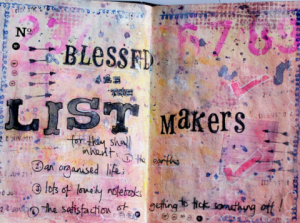 Nº
BLESSED
ARE
THE
LIST MAKERS
for they shall
inherit: ① the earths
① an organised life.
② lots of lovely notebooks
③ the satisfaction of getting to tick something off!